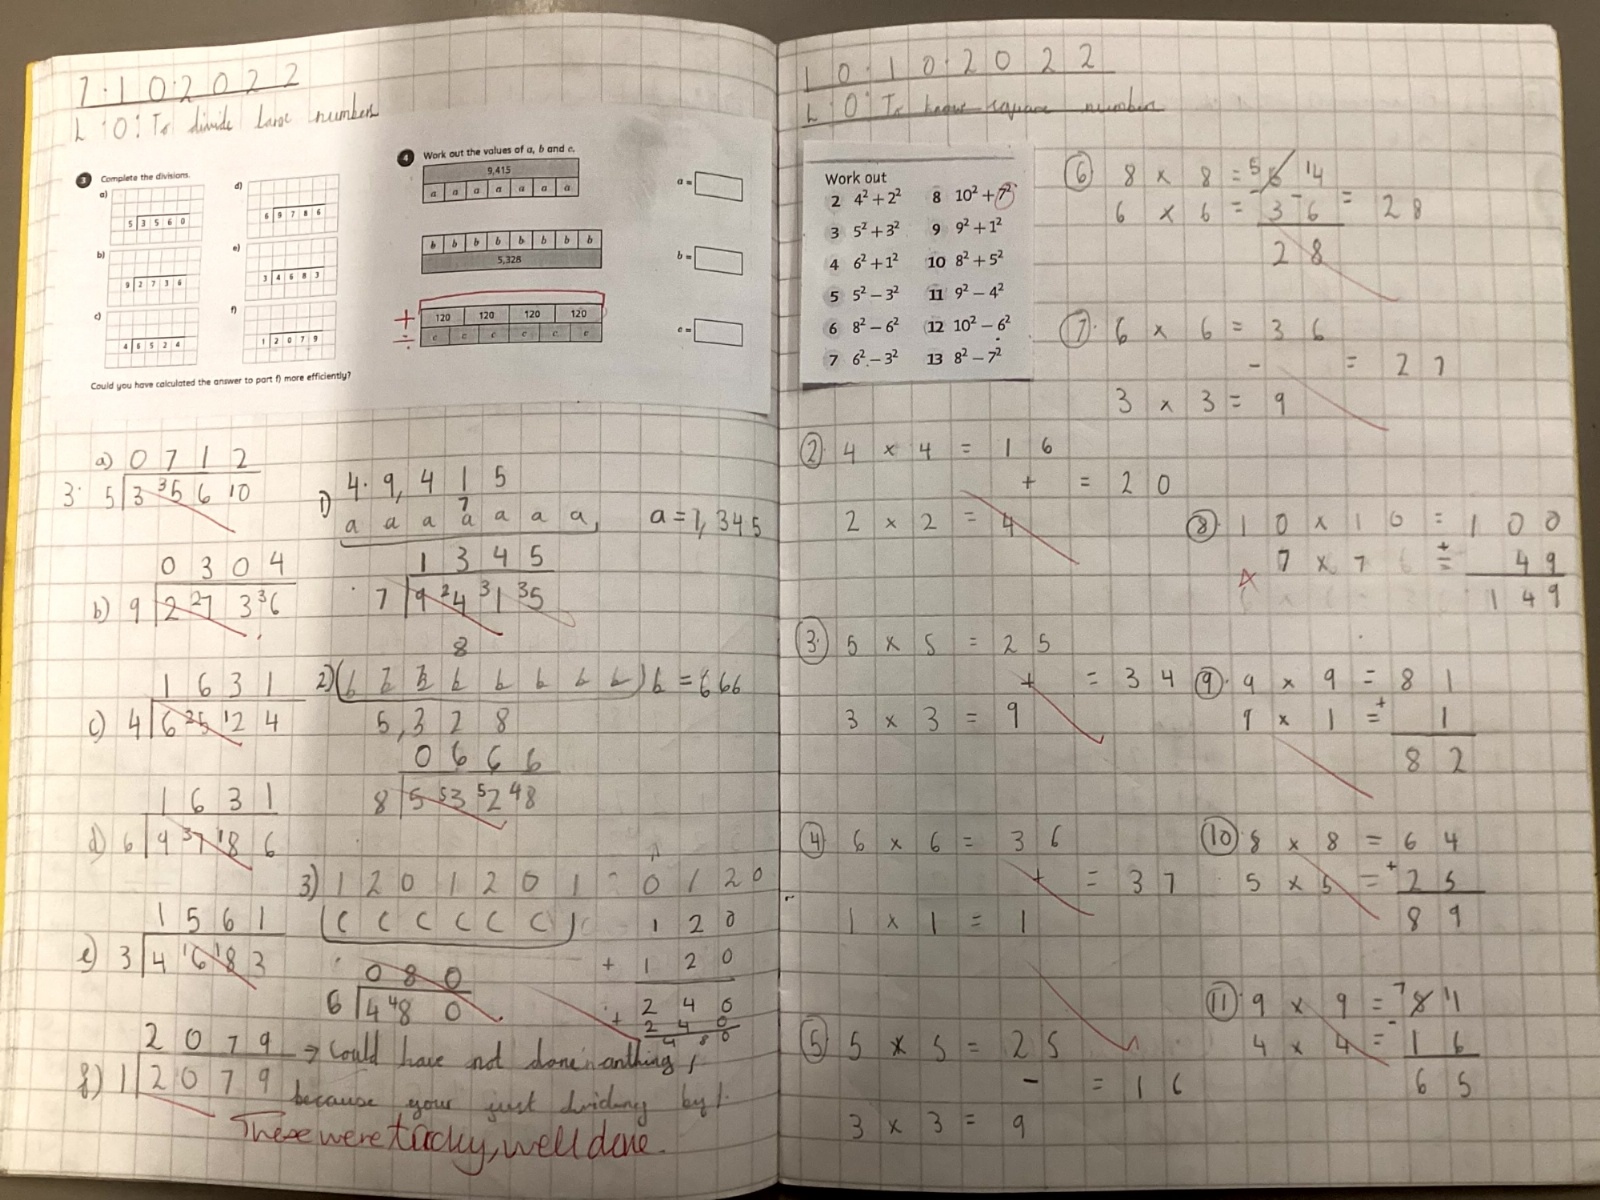 7.10.2022
L.O: To divide large numbers
3 Complete the divisions.
a) 5 3 5 6 0
b) 9 2 7 3 6
c) 4 6 5 2 4
d) 6 9 7 8 6
e) 3 4 6 8 3
f) 1 2 0 7 9
Could you have calculated the answer to part f) more efficiently?
4 Work out the values of a, b and c.
9,415
a a a a a a a
a =
b b b b b b b b
5,328
b =
+ 120 120 120 120
÷ c c c c c c
c =
a) 0 7 1 2
3. 5 3 35 6 10
b) 0 3 0 4
9 2 27 3 36
c) 1 6 3 1
4 6 25 12 4
d) 1 6 3 1
6 9 37 18 6
e) 1 5 6 1
3 4 16 18 3
f) 2 0 7 9 → Could have not done anthing,
1 2 0 7 9 because your just dividing by 1.
1) 4. 9,415
7
a a a a a a a, a = 1,345
1 3 4 5
7 9 24 31 35
8
2) (b b b b b b b b) b = 666
5,328
0 6 6 6
8 5 53 52 48
3) 1 2 0 1 2 0 1 2 0 1 2 0
(c c c c c c)
0 8 0
6 4 48 0
1 2 0
+ 1 2 0
2 4 0
+ 2 4 0
4 8 0
These were tricky, well done.
10.10.2022
L.O: To know square numbers
Work out
2 4² + 2²
3 5² + 3²
4 6² + 1²
5 5² − 3²
6 8² − 6²
7 6² − 3²
8 10² + 7²
9 9² + 1²
10 8² + 5²
11 9² − 4²
12 10² − 6²
13 8² − 7²
2 4 × 4 = 16
+ = 20
2 × 2 = 4
3. 5 × 5 = 25
+ = 34
3 × 3 = 9
4 6 × 6 = 36
+ = 37
1 × 1 = 1
5 5 × 5 = 25
- = 16
3 × 3 = 9
6 8 × 8 = 5 6 14
6 × 6 = - 36 = 28
28
7. 6 × 6 = 36
- = 27
3 × 3 = 9
8. 10 × 10 = 100
7 × 7 = + 49
149
9. 9 × 9 = 81
1 × 1 = + 1
82
10 8 × 8 = 64
5 × 5 = + 25
89
11 9 × 9 = 7 8 11
4 × 4 = - 16
65